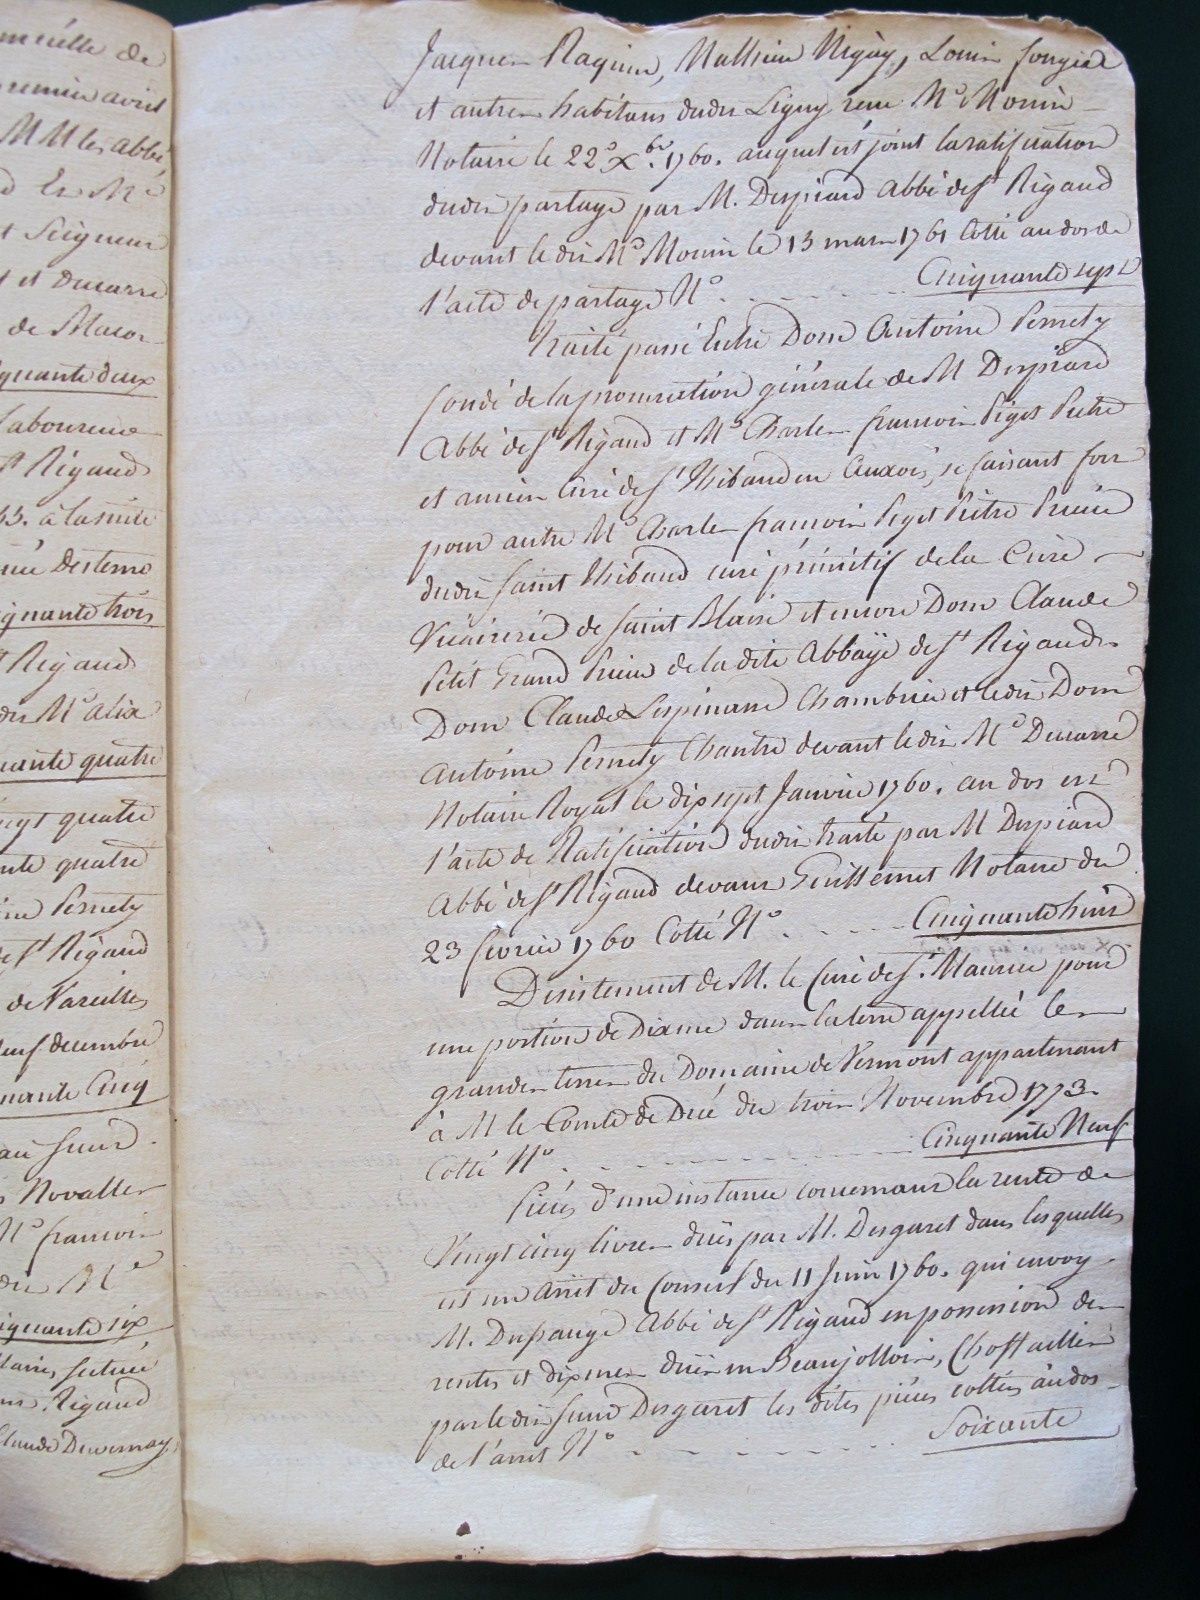 mielle de
premier avril
MM les abbé
Et Me
et Seigneur
et Ducarre
de Macon
quante deux
Laboureur
st Rigaud
53. à la suite
née Desterne
quante trois
st Rigaud
dit Me alix
quante quatre
vingt quatre
nte quatre
ine Pernety
de st Rigaud
de Vareilles
neuf decembre
quante Cinq
au sieur
Novalles
Me francois
dit Me
quante six
Claude Duvernay
Jacques Raquin, Mathieu Nigay, Louis fougiere
et autres habitans dudit Ligny reçu Me Monin
Notaire le 22e Xbre 1760. auquel est joint la ratification
dudit partage par M. Despiard Abbé de St Rigaud
devant le dit Me Monin le 13 mars 1761 Cotté au dos de
l'acte de partage No . . . . . . . Cinquante sept
traité passé Entre Dom Antoine Pernety
fondé de la procuration générale de M Despiard
Abbé de St Rigaud et Me Charles francois Piget Prêtre
et ancien Curé de St Thibaud en Auxois, se faisant fort
pour autre Me Charles francois Piget Prêtre Prieur
dudit Saint Thibaud curé primitif de la Cure
Vicairerie de Saint Blaise et encore Dom Claude
Petit Grand Prieur de la dite Abbaÿe de St Rigaud
Dom Claude Lespinasse Chambrier et ledit Dom
Antoine Pernety Chantre devant ledit Me Ducarre
Notaire Royal le dix sept Janvier 1760. au dos est
l'acte de Ratification dudit traité par M Despiard
Abbé de St Rigaud devant Guillemet Notaire du
23 fevrier 1760 Cotté No . . . . . Cinquante huit
Desistement de M. le Curé de St. Maurice pour
une portion de Dixme dans la terre appellée les
grandes terres du Domaine de Vermont appartenant
à M le Comte de Drée du trois Novembre 1773.
Cotté No . . . . . . . . Cinquante Neuf
Pieces d'une instance concernant la rente de
Vingt cinq livres düe par M. Desgaret dans lesquelles
est un Arrêt du Conseil du 11 Juin 1760. qui envoy
M. Dusauge Abbé de St Rigaud en possession des
rentes et dixmes düe en Beaujollois, Choffailles
par ledit sieur Desgaret les dites pièces cottées au dos
de l'arrêt No . . . . . . . . Soixante